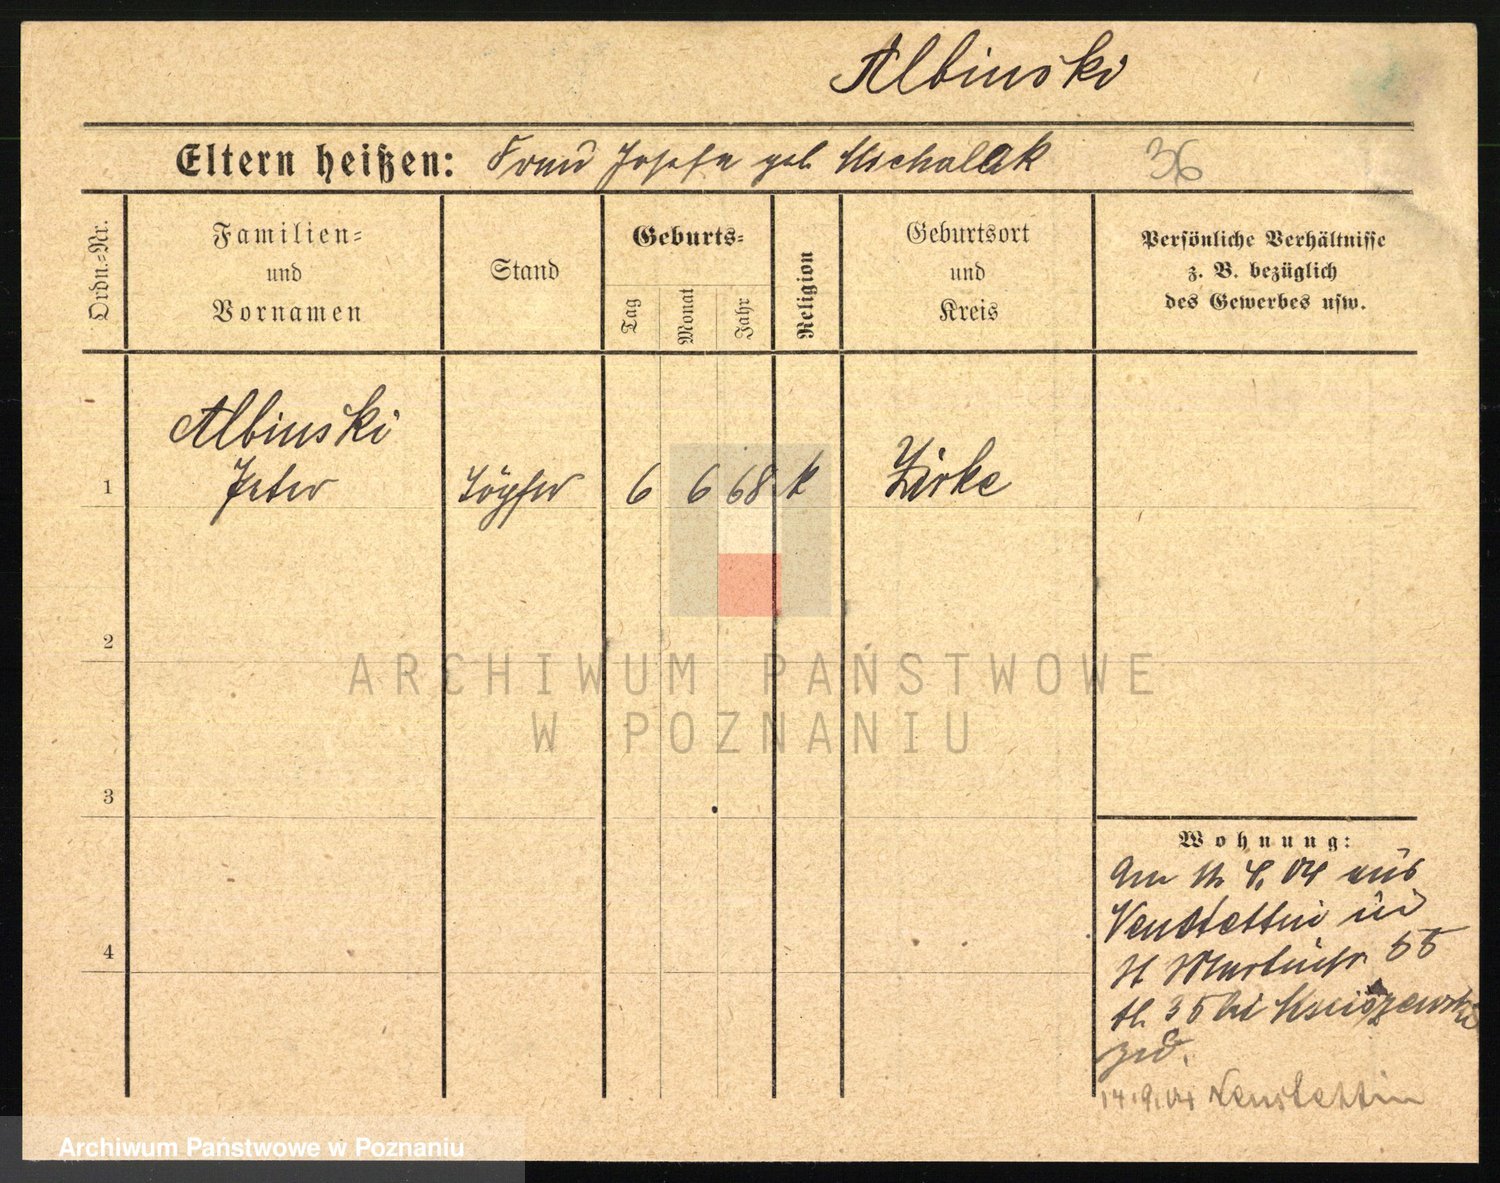 Albinski
Eltern heißen: Franz Josefa geb Michalak 36
Ordn.=Nr.
Familien=
und
Vornamen
Stand
Geburts=
Tag
Monat
Jahr
Religion
Geburtsort
und
Kreis
Persönliche Verhältnisse
z. B. bezüglich
des Gewerbes usw.
Albinski
1 Peter Töpfer 6 6 68 k Zirke
2
ARCHIWUM PAŃSTWOWE
W POZNANIU
3
Wohnung:
Am 4. 04 aus
Neustettin in
St Martinstr. 55
bei
4
zu.
14.9.04 Neustettin
Archiwum Państwowe w Poznaniu